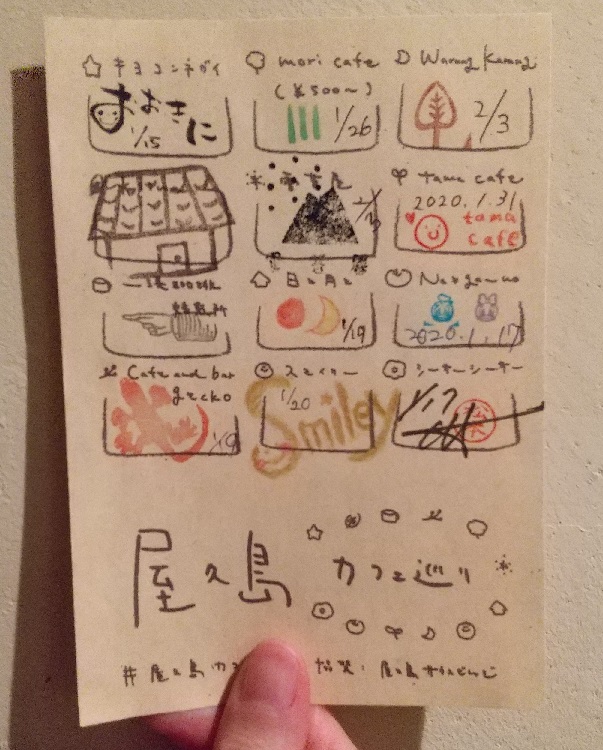 キヨコンネガイ
おおきに
1/15
mori cafe
(¥500〜)
1/26
Warung Kamang
2/3
tama cafe
2020.1.31
tama
cafe
一湊珈琲
焙煎所
日と月と
1/19
2020.1.17
Cafe and bar
gecko
スマイリー
1/20
Smiley
シーキーシーキー
1/17
屋久島
カフェ巡り
#屋久島カフ
協賛:屋久島